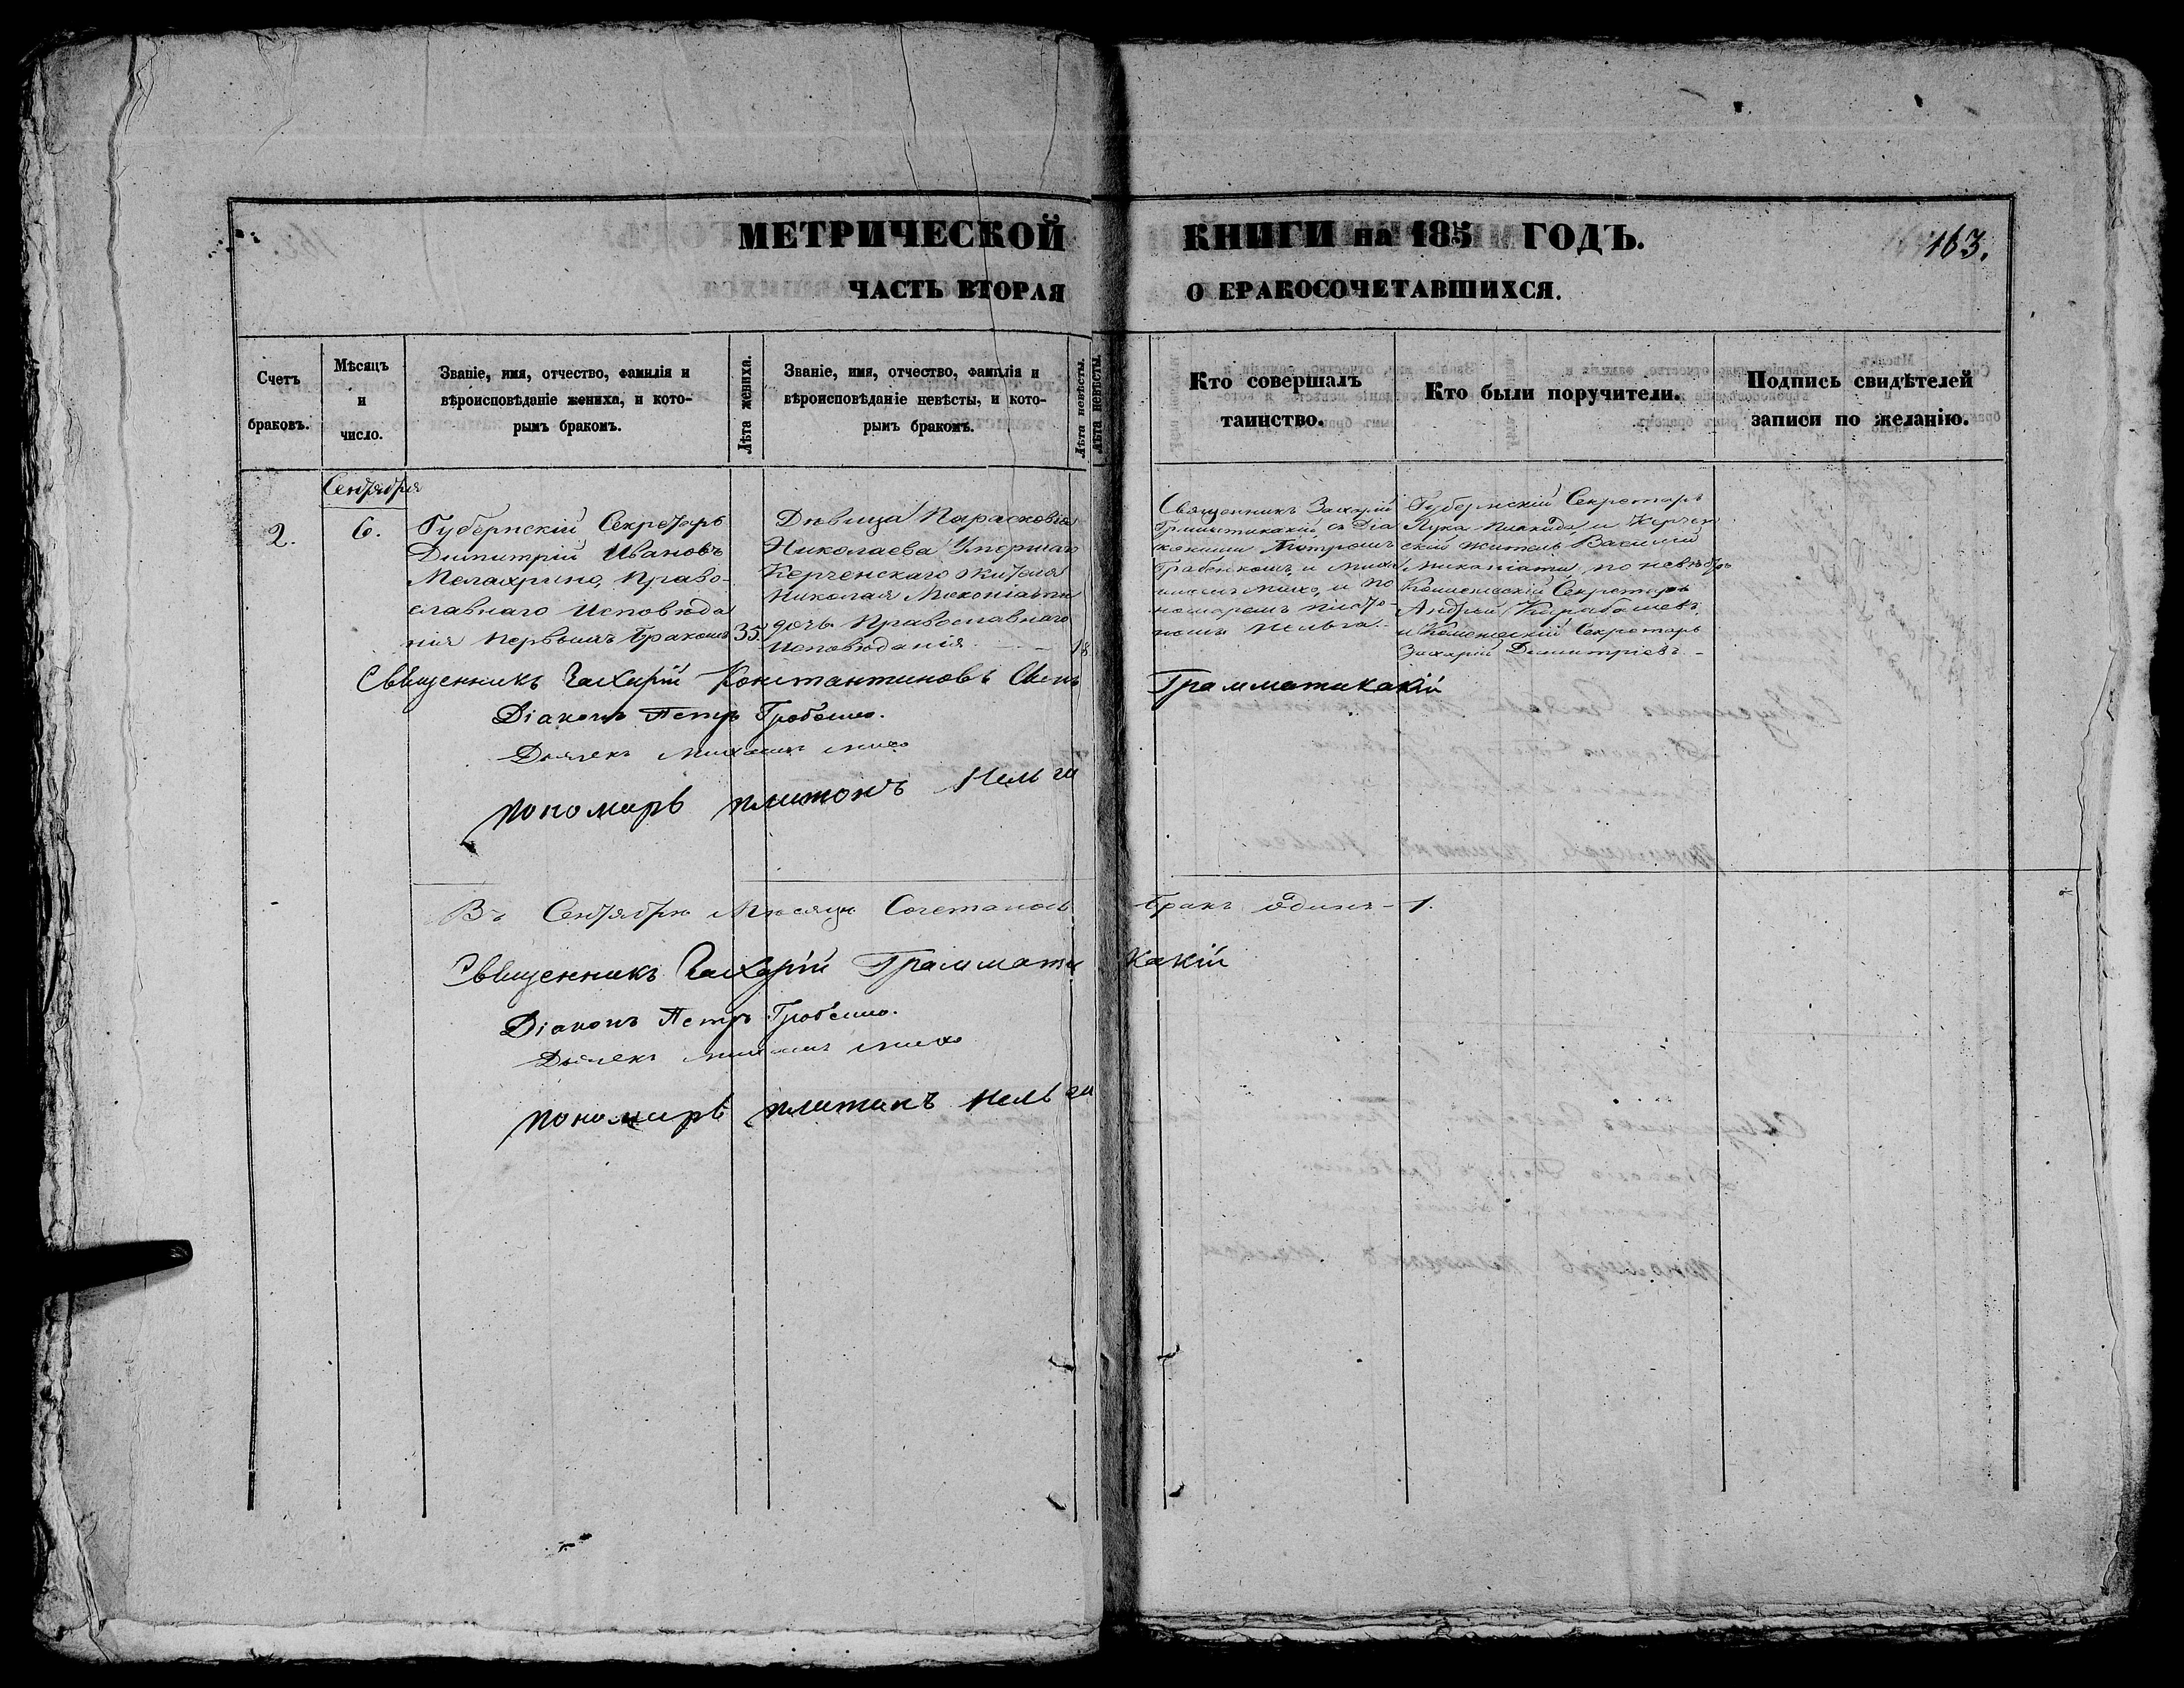 МЕТРИЧЕСКОЙ КНИГИ на 185 ГОДЪ.
163.
ЧАСТЬ ВТОРАЯ О БРАКОСОЧЕТАВШИХСЯ.
Счетъ
браковъ.
Мѣсяцъ
и
число.
Званіе, имя, отчество, фамилія и
вѣроисповѣданіе жениха, и кото-
рымъ бракомъ.
Лѣта жениха.
Званіе, имя, отчество, фамилія и
вѣроисповѣданіе невѣсты, и кото-
рымъ бракомъ.
Лѣта невѣсты.
Лѣта невѣсты.
Кто совершалъ
таинство.
Кто были поручители.
Подпись свидѣтелей
записи по желанію.
Сентября
2.
6.
Губернскій Секретарь
Димитрій Ивановъ
Мелахрино, Право-
славнаго Исповѣда
нія первымъ бракомъ
35.
Дѣвица Парасковія
Николаева Умершаго
Керченскаго жителя
Николая
дочь Православнаго
Исповѣданія.
18
Священникъ Захарій
Грамматикакій съ Діа
кономъ Петромъ
и Миха
иломъ Михо, и По
номаремъ Плато-
номъ Нельга.
Губернскій Секретарь
Лука и Керчен
скій житель Василій
по невѣстѣ
Секретарь
Андрей Карабашевъ
и Секретарь
Захарій Димитріевъ.
Священникъ Захарій Константиновъ Сынъ Грамматикакій
Діаконъ Петръ
Дьячекъ Михаилъ Михо
пономарь платонъ Нельга
Въ Сентябрѣ Мѣсяцѣ Сочетанъ бракъ одинъ - 1.
Священникъ Захарій Грамматикакій
Діаконъ Петръ
Дьячекъ Михаилъ Михо
пономарь платонъ Нельга